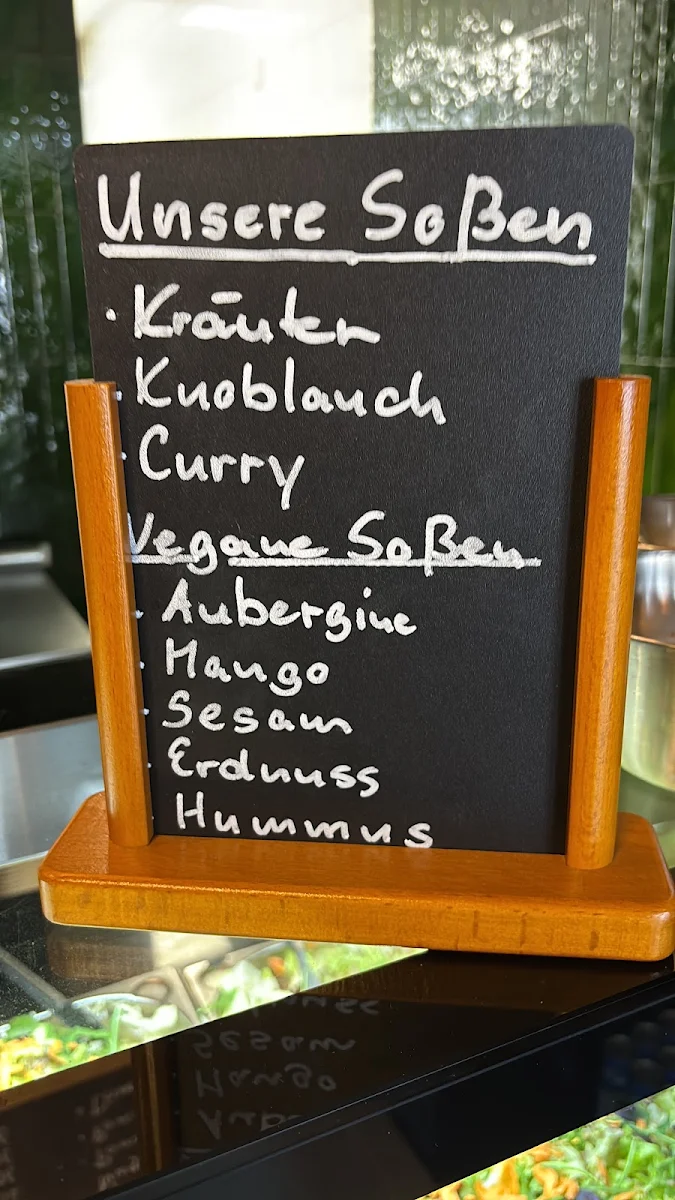 Unsere Soßen
· Kräuter
· Knoblauch
· Curry
Vegane Soßen
· Aubergine
· Mango
· Sesam
· Erdnuss
· Hummus